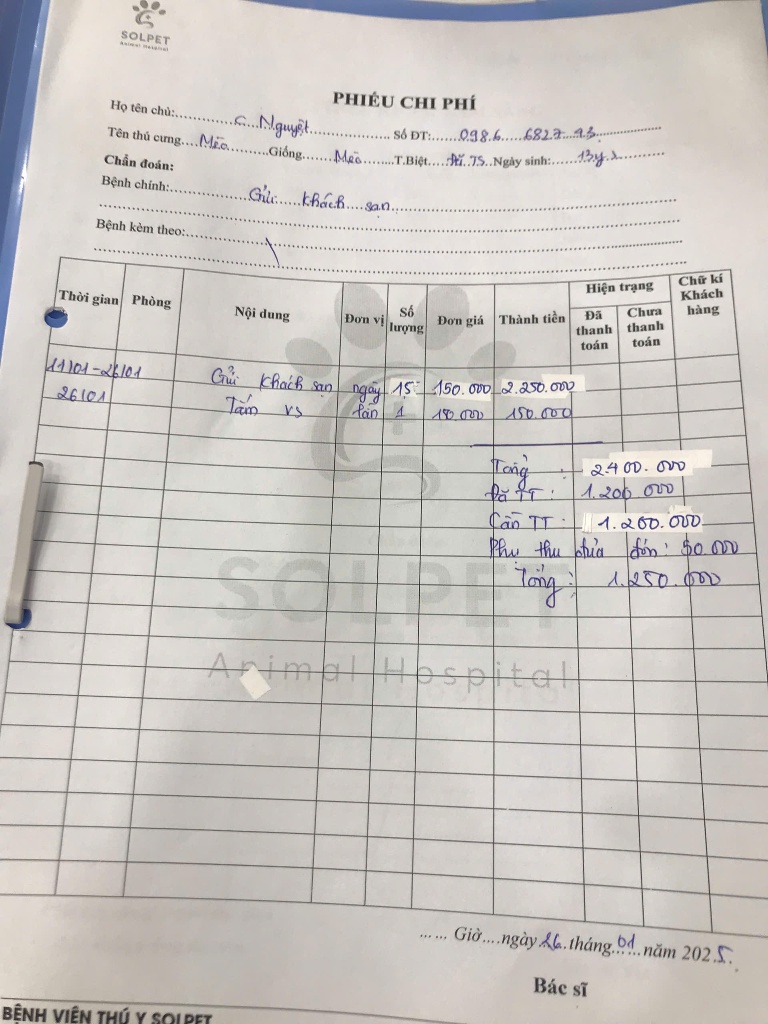 SOLPET
Animal Hospital
PHIẾU CHI PHÍ
Họ tên chủ: C. Nguyệt Số ĐT: 098.6 6827 93
Tên thú cưng Mèo Giống Mèo T.Biệt TS Ngày sinh: 13y
Chẩn đoán:
Bệnh chính: Gửi khách sạn
Bệnh kèm theo:
Thời gian Phòng Nội dung Đơn vị Số lượng Đơn giá Thành tiền Hiện trạng Đã thanh toán Chưa thanh toán Chữ kí Khách hàng
11/01-26/01 Gửi khách sạn ngày 15 150.000 2.250.000
26/01 Tắm vs lần 1 150.000 150.000
Tổng : 2.400.000
Đã TT : 1.200 000
Cần TT : 1.200.000
Phụ thu đưa đón: 50.000
Tổng : 1.250.000
SOLPET
Animal Hospital
...... Giờ....ngày 26 tháng 01 năm 2025.
Bác sĩ
BỆNH VIỆN THÚ Y SOLPET